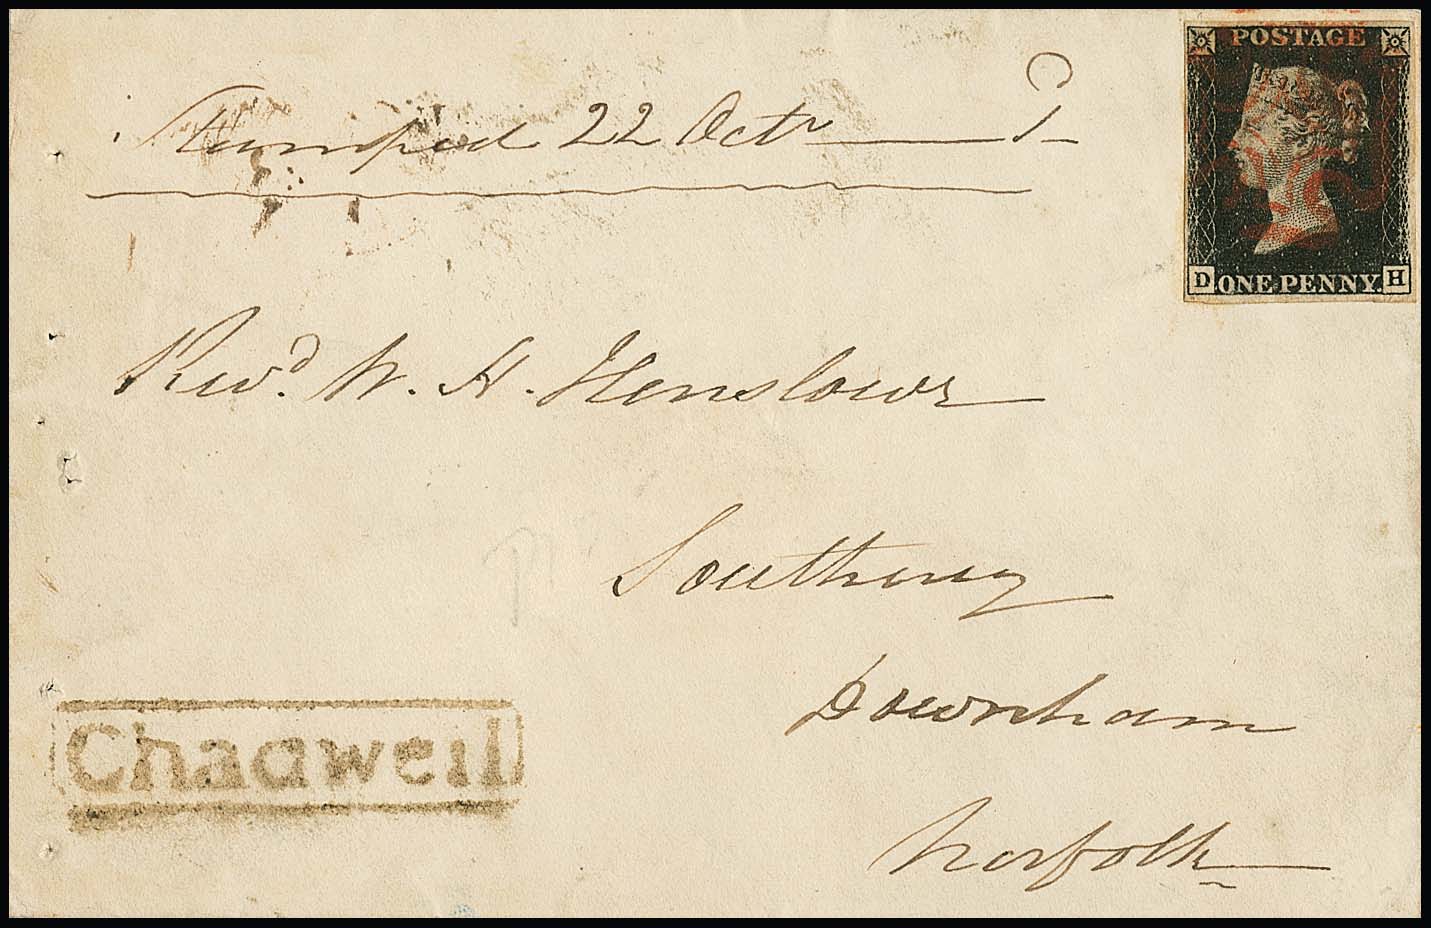 POSTAGE
D ONE PENNY. H
Stamped 22 Octr
Revd. W. H. Henslowe
Southery
Downham
Norfolk
Chadwell